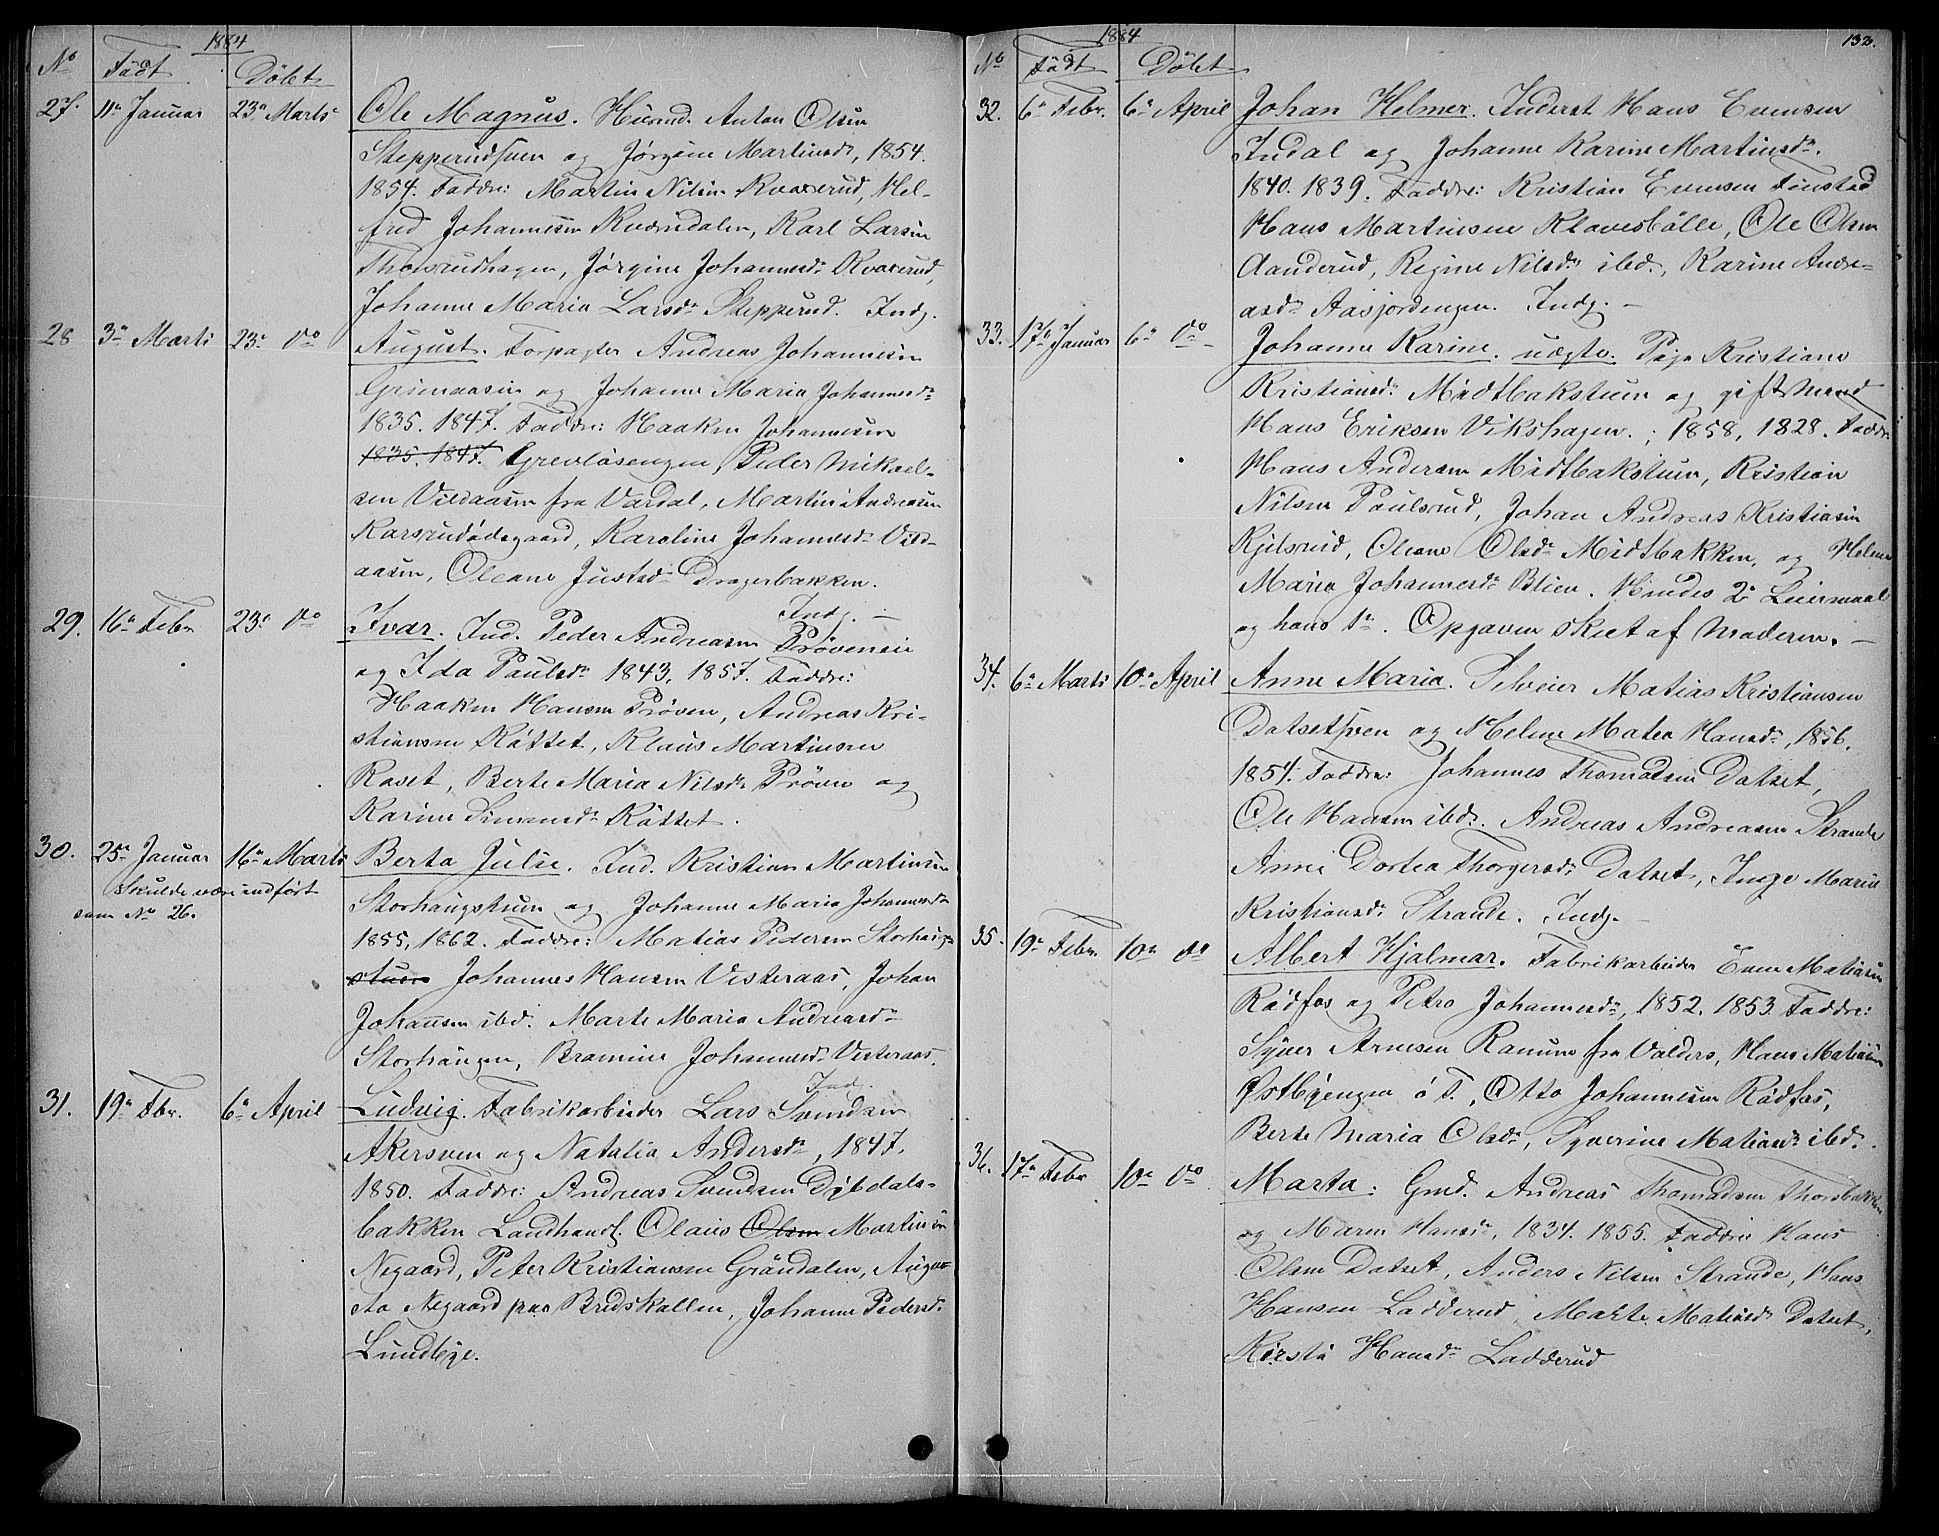 1884
No Født Døbt
27. 11te Januar 23de Marts Ole Magnus. Huusmd. Anton Olsen
Stepperudsveen og Jørgine Martinsdr, 1854.
1854. Faddre: Martin Nilsen Kværerud, Hel-
fred Johannesen Kværudalen, Karl Larsen
Thorsrudhagen, Jørgine Johannesdr Kværerud,
Johanne Maria Larsdr Stepperud. Indg.
28 3de Marts 23de Do August. Forpagter Andreas Johannesen
Grimaasen og Johanne Maria Johannesdr
1835. 1847. Faddre: Haaken Johannesen
1835. 1847. Grevløsengen, Peder Mikael-
sen Vildaasen fra Vardal, Martin Andreasen
Karsrudødegaard, Karoline Johannesdr Vild-
aasen, Oleane Justsdr Dragerbakken.
Indg. –
29. 16de Febr 23de Do Ivar. Ind. Peder Andreasen Prøveneie
og Ida Paulsdr 1843, 1857. Faddre:
Haaken Hansen Prøven, Andreas Kri-
stiansen Røttet, Klaus Martinsen
Roset, Berte Maria Nilsdr Prøven og
Karine Simensdr Røttet.
30. 25de Januar 16de Marts Berta Julie. Ind. Kristian Martinsen
Skulde være indført
som No 26.
Storhaugstuen og Johanne Maria Johannesdr
1855, 1862. Faddre: Matias Pedersen Storhaug-
stuen Johannes Hansen Vesteraas, Johan
Johansen ibd. Marte Maria Andreasdr
Storhaugen, Bramine Johannesdr Vesteraas.
Ind.
31. 19de Fbr. 6te April Ludvig. Fabrikarbeider Lars Svendsen
Akersveen og Natalia Andersdr, 1847,
1850. Faddre: Andreas Svendsen Dybdals-
bakken Landhandl. Olaus Olsen Martinsen
Negaard, Peter Kristiansen Grøndalen, Augu-
sta Negaard paa Bredskallen, Johanne Pedersdr
Lundbye.
1884 132.
No Født Døbt
32. 6te Febr. 6te April Johan Helmer. Inderst Hans Evensen
Indal og Johanne Karine Martinsdr.
1840. 1839. Faddre: Kristian Evensen Finstad
Hans Martinsen Klavesbølle, Ole Olsen
Aanderud, Regine Nilsdr ibd., Karine Andre-
asdr Aasjordengen. Indg. –
33. 17de Januar 6te Do – Johanne Karine. uægte. Pige Kristiane
Kristiansdr Midtbakstuen og gift Mand
Hans Eriksen Vikshagen.; 1858, 1828. Faddre
Hans Andersen Midtbakstuen, Kristian
Nilsen Poulsrud, Johan Andreas Kristiansen
Kjelsrud, Oleane Olsdr Midtbakken, og Helene
Maria Johannesdr Blien. Hendes 2de Leiermaal
og hans 1ste. Opgaven skeet af Moderen. –
34. 6te Marts 10de April Anne Maria. Selveier Matias Kristiansen
Datsetsveen og Helene Matea Hansdr, 1856.
1854. Faddre: Johannes Thomassen Datset,
Ole Hansen ibdr. Andreas Andreasen Strande
Anne Dortea Thorgersdr Datset, Inge Maria
Kristiansdr Strande. Indg. –
35. 19de Febr. 10de do Albert Hjalmar. Fabrikarbeider Even Matiasen
Rødfos og Petra Johannesdr, 1852. 1853. Faddre:
Syver Arnesen Ranum fra Valders, Hans Matiasen
Østbyengen ø T., Otto Johannesen Rødfos,
Berte Maria Olsdr, Syverine Matiasdr ibd.
36. 17de Febr 10de Do Marta: Gmd. Andreas Thomasen Thorsbakken
og Maren Hansdr, 1834. 1855. Faddre Hans
Olsen Datset, Anders Nilsen Strande, Hans
Hansen Ladderud, Marte Matiasdr Datset,
Kirsti Hansdr Ladderud